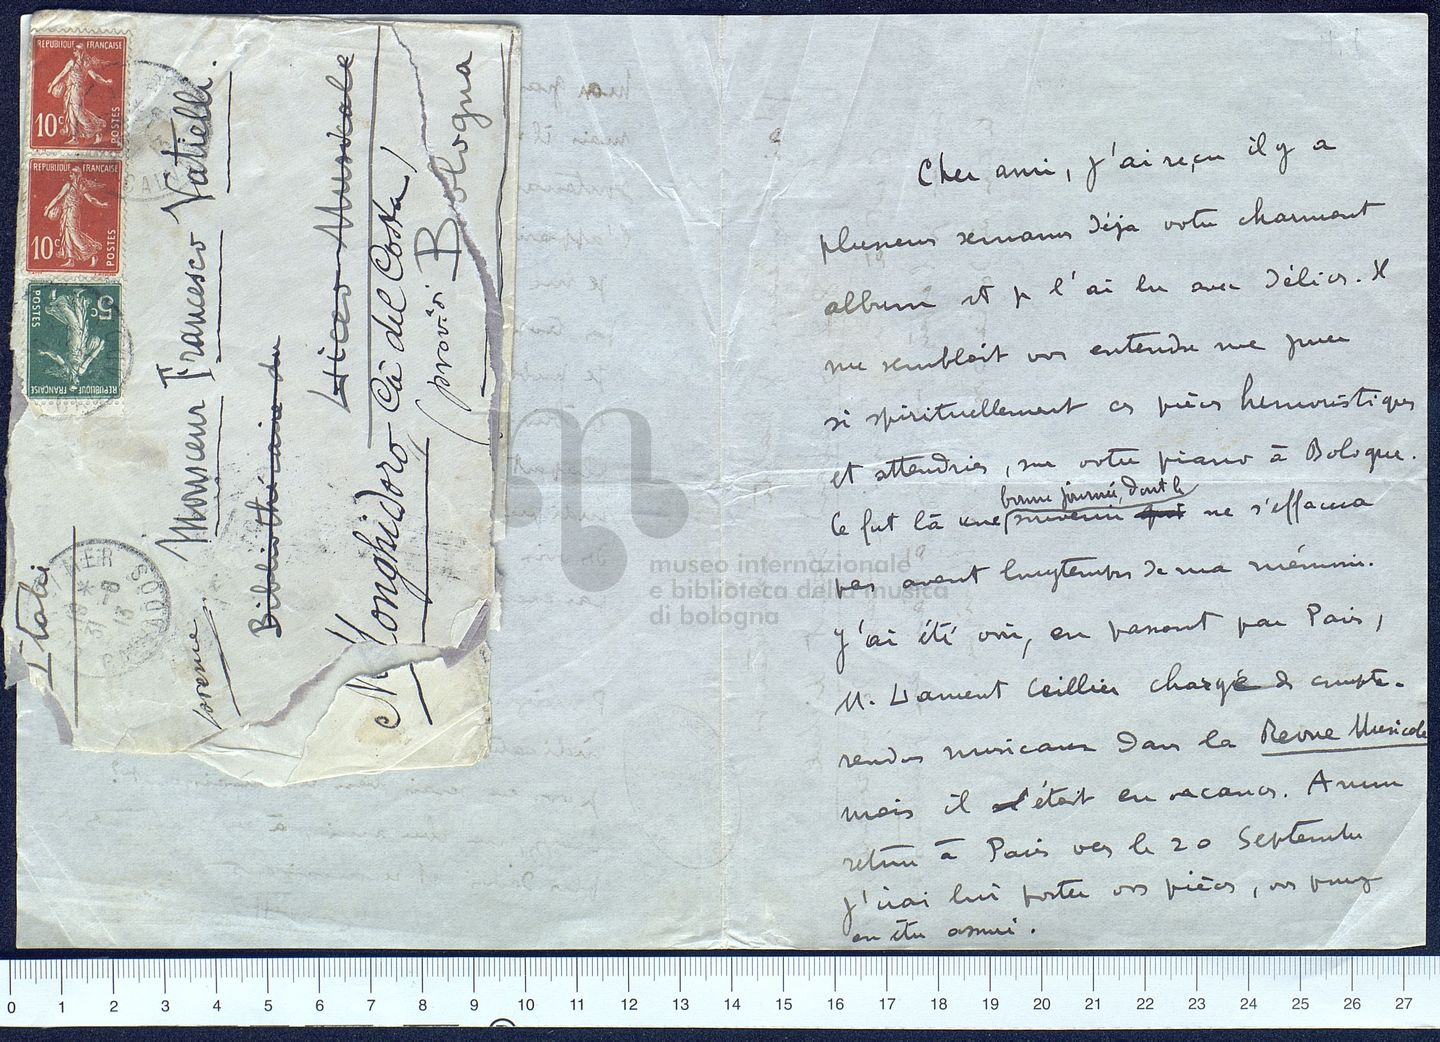 REPUBLIQUE FRANÇAISE
10c POSTES
REPUBLIQUE FRANÇAISE
10c POSTES
REPUBLIQUE FRANÇAISE
5c POSTES
Monsieur Francesco Vatielli.
Bibliothécaire du
Liceo Musicale
Monghidoro Cà del Costa,
(provi di Bologna
Italie
MER CALVADOS
18 * 31 -8 13
Cher ami, j'ai reçu il y a
plusieurs semaines déjà votre charmant
album et je l'ai lu avec délices. Il
me semblait vous entendre me jouer
si spirituellement ces pièces humoristiques
et attendries, sur votre piano à Bologne.
Ce fut là une bonne journée dont le souvenir qui ne s'effacera
pas avant longtemps de ma mémoire.
J'ai été voir, en passant par Paris,
M. Laurent Ceillier chargé de comptes-
rendus musicaux dans la Revue Musicale
mais il était en vacances. A mon
retour à Paris vers le 20 Septembre
j'irai lui porter vos pièces, vous pouvez
en être assuré.
museo internazionale
e biblioteca della musica
di bologna
0 1 2 3 4 5 6 7 8 9 10 11 12 13 14 15 16 17 18 19 20 21 22 23 24 25 26 27